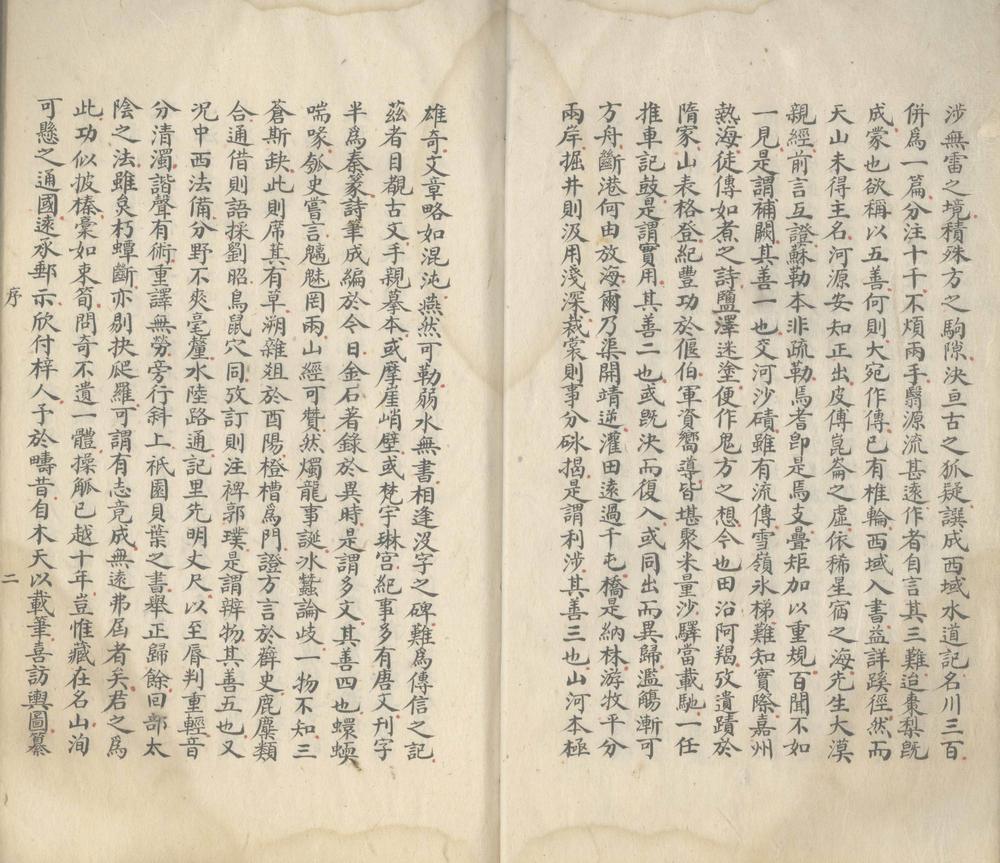 涉無雷之境積殊方之駒隙決亘古之狐疑譔成西域水道記名川三百
併爲一篇分注十千不煩兩手翳源流甚遠作者自言其三難迨棗梨旣
成蒙也欲稱以五善何則大宛作傳已有椎輪西域入書益詳蹊徑然而
天山未得主名河源安知正出皮傅崑崙之虛依稀星宿之海先生大漠
親經前言互證蘇勒本非疏勒焉耆卽是焉支疊矩加以重規百聞不如
一見是謂補闕其善一也交河沙磧雖有流傳雪嶺氷梯難知實際嘉州
熱海徒傳如煮之詩鹽澤迷塗便作鬼方之想今也田沿阿羯攷遺蹟於
隋家山表格登紀豐功於偃伯軍資嚮導皆堪聚米量沙驛當載馳一任
推車記鼓是謂實用其善二也或旣決而復入或同出而異歸濫觴漸可
方舟斷港何由放海爾乃渠開靖逆灌田遠過千屯橋是納林游牧平分
兩岸掘井則汲用淺深裁裳則事分砅揭是謂利涉其善三也山河本極
雄奇文章略如混沌燕然可勒弱水無書相逢沒字之碑難爲傳信之記
茲者目覩古文手親摹本或摩崖峭壁或梵宇琳宫紀事多有唐文刊字
半爲秦篆詩筆成編於今日金石著錄於異時是謂多文其善四也蠉蝡
喘喙瓠史嘗言魑魅罔兩山經可贊然燭龍事誕氷蠶論歧一物不知三
蒼斯缺此則席萁有草朔雜俎於酉陽橙槽爲門證方言於癖史鹿麋類
合通借則語採劉昭鳥鼠穴同攷訂則注裨郭璞是謂辨物其善五也又
況中西法備分野不爽毫釐水陸路通記里先明丈尺以至脣判重輕音
分清濁諧聲有術重譯無勞旁行斜上祇園貝葉之書舉正歸餘回部太
陰之法雖炱朽蟫斷亦剔抉爬羅可謂有志竟成無遠弗屆者矣君之爲
此功似披榛橐如束筍問奇不遺一體操觚已越十年豈惟藏在名山洵
可懸之通國遠承郵示欣付梓人予於疇昔自木天以載筆喜訪輿圖纂
序
二